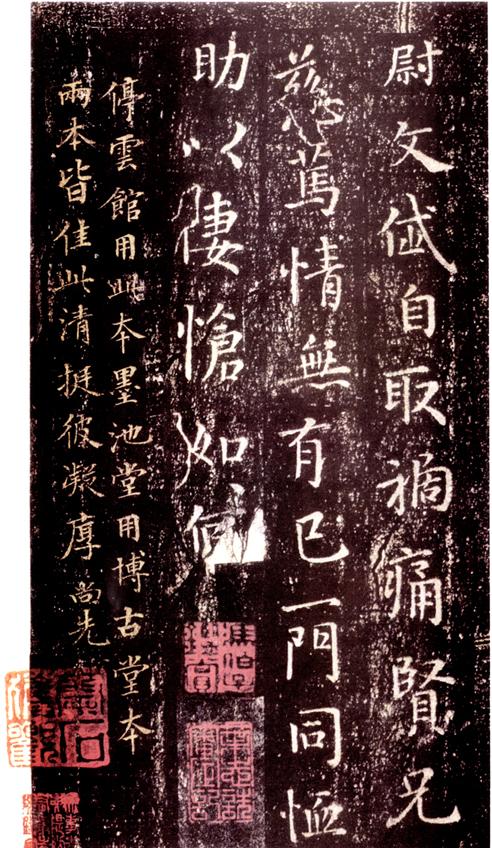 尉文岱自取禍痛賢兄
慈篤情無有已一門同恤
助以悽愴如何
停雲館用此本墨池堂用博古堂本
兩本皆佳此清挺彼凝厚 尚先